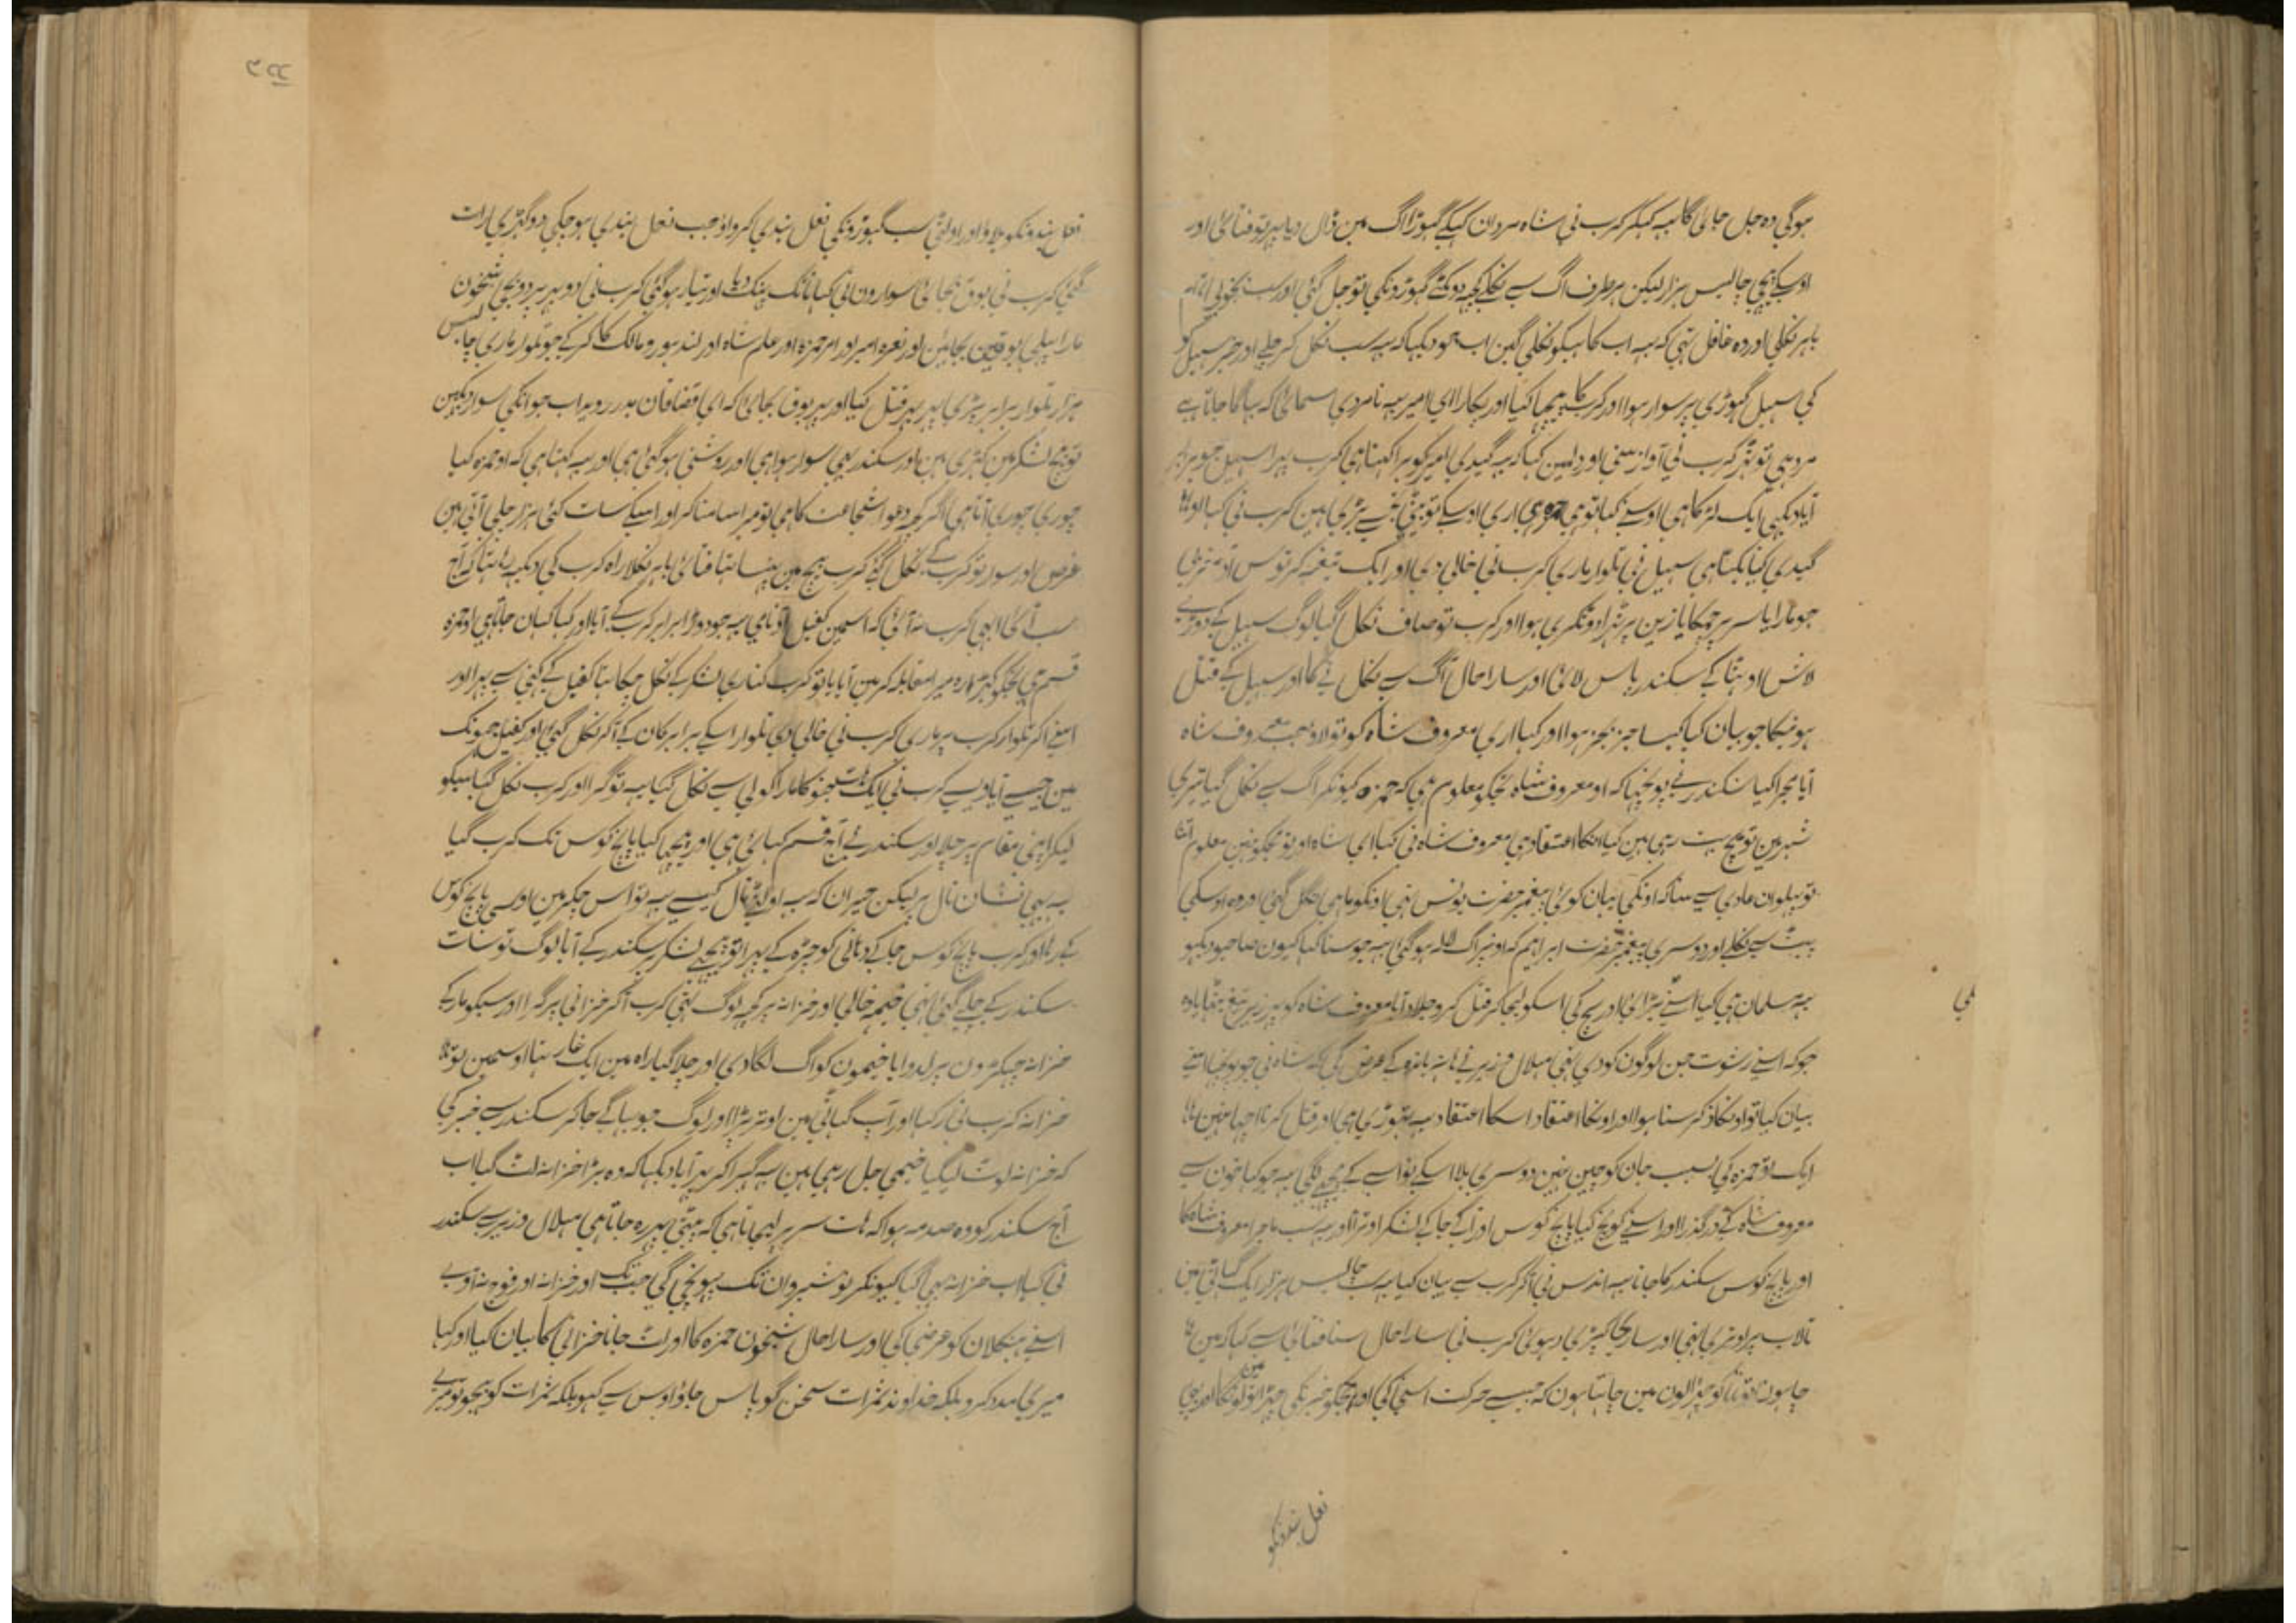 ہوگی وہ جل جائی گا یہ کہکر کرب نی شاہ مردان کہکے گہوڑا اگ مین ڈال دیا پہر تو فتائی اور
اوسکے پیچہی چالیس ہزار لیکن ہر طرف اگ سے نکلے کچہ دو کتے گہوڑونکی تو جل گئی اور سب بخوبی
باہر نکلی اور وہ غافل تہی کہ یہ اب کاہیکو نکلی گین اب جو دیکہا کہ یہ سب نکل کر چلے اور خبر سہیل کو
کی سہیل گہوڑی پر سوار ہوا اور کرب کا پیچہا کیا اور پکارا ای امیر یہ نامردی سمائی کہ بہاگا جاتا ہے
مرد ہی تو ٹہر کرب نی آواز سنی اور دلمین کہا کہ یہ گیدی امیر کو برا کہتا ہی کرب پہرا سہیل جو برابر
آیا دیکہی ایک لڑکا ہی اوسنے کہا تو ہی حمزہ ہی اری اوسکے تو بیٹی بڑے بڑی ہین کرب نی کہا او
گیدی کیا بکتا ہی سہیل نی تلوار ماری کرب نی خالی دی اور ایک تیغہ کرتوس
جو مارا یا سر پر چمکا یا زین پر ٹہرا دو ٹکری ہوا اور کرب تو صاف نکل گیا لوگ سہیل کے دوڑے
لاش اوٹہا کے سکندر پاس لائی اور سارا حال آگ سے نکل نے کا اور سہیل کے قتل
ہونیکا جو بیان کیا کیسا جز بجز ہوا اور کہا اری معروف شاہ کو تو لاؤ جب معروف شاہ
آیا مجرا کیا سکندر نے پوچہا کہ او معروف شاہ تجکو معلوم ہی کہ حمزہ کیونکر اگ سے نکل گیا تیری
شہر مین تو بیچ بت رہی ہین کیا انکا اعتقاد ہی معروف شاہ نی کہا ای شاہ اور تو مجکو نہین معلوم اتنا
تو پہلوان عادی سے سنا کہ اونکی یہان کوئی پیغمبر حضرت یونس تہی اونکو ماہی نگل گئی اور وہ اوسکی
پیٹ سے نکلے اور دوسری پیغمبر حضرت ابراہیم کہ اونپر اگ لالہ ہوگئی یہ جو سنا کہا کیون صاحبو دیکہو
یہ مسلمان ہی کیا اسنے بڑائی اور بیچ کی اسکو لیجا کر قتل کرو جلاد آیا معروف شاہ کو زیر تیغ بٹہایا وہ
جو کہ اسنے رشوت جن لوگون کو دی تہی ہلال وزیر نے ہاتہ باندہ کے عرض کی کہ شاہ نی جو پوچہا اسنے
بیان کیا تو اونکا ذکر سنا ہوا اور اونکا اعتقاد اسکا اعتقاد یہ تہوڑی ہی اور قتل کرنا اچہا نہین
ایک تو حمزہ کی سبب جان کو چین نہین دوسری بلا اسکے نواسے کے پیچہے لگی یہ جو کہا خون سے
معروف شاہ کے درگذرا اور اسنے کوچ کیا پانچ کوس اور اگے جا کے لشکر اوترا اور یہ سب ماجرا معروف شاہ کا
اور پانچ کوس سکندر کا جانا یہ اندس نی اکر کرب سے بیان کیا یہ سب چالیس ہزار ایک گہاٹی مین
تالاب پر اوتری تہی اور سارا کپڑی دہوئی کرب نی سارا حال سنا فتائی سے کہا کہ مین
چاہون تو چہڑالون مین چاہتا ہون کہ جیسے حرکت اسنی کی اور مجکو خبر نکی
لی
نعل بندونکو
نعل بندونکو بلاؤ اور اولٹی سب گہوڑونکی نعل بندی کرواؤ جب نعل بندی ہوچکی دو گہڑی رات
گئی کرب نی بوق بجائی سوارون نی کہا ہانک پہنک دیا اور تیار ہوگئی کرب نی دوپہر پر دو بجی شبخون
مارا پہلی بوقین بجائین اور نعرہ امیر اور امر حمزہ اور علم شاہ اور لندہور و مالک کا کر کے جو تلوار ماری چالیس
ہزار تلوار برابر پڑی پہر پہر قتل کیا اور پہر بوق بجائی کہ ای قضاقان بدر روید اب جو انکی سوار دیکہین
تو بیچ لشکر مین کہڑی ہین اور سکندر بہی سوار ہوا ہی اور روشنی ہوگئی ہی اور یہ کہتا ہی کہ او حمزہ کیا
چوری چوری آتا ہی اگر کچہ دعوا شجاعت کا ہی تو میرا سامنا کر اور اسکے سات کئی ہزار چلی آتی ہین
غرض اور سوار تو کرب کے نکل گئے کرب بیچ مین پہنسا تہا فتائی باہر نکلا راہ کرب کی دیکہہ رہا تہا کہ آج
سب آئی ابہی کرب نہ آئی کہ اسمین کفیل نامی یہ جو دوڑا برابر کرب کے آیا اور کہا کہان جاتا ہی او حمزہ
قسم ہی تجکو کہڑا رہ میرا مقابلہ کر مین آیا یا تو کرب کناری لشکر کے نکل چکا تہا کفیل کے کہنی سے پہرا اور
اسنے اکر تلوار کرب پر ماری کرب نی خالی دی تلوار اسکے برابر کان کے آکر نکل گئی اور کفیل جہونک
مین جیسے آیا ویسے کرب نی ایک ہات نیمچہ کا مارا کولی سے نکل گیا یہ تو گرا اور کرب نکل گیا سبکو
لیکر اپنی مقام پر چلا اور سکندر نے آج قسم کہائی ہی اور پیچہا کیا پانچ کوس تک کرب گیا
یہ بہی نشان نال پر لیکن حیران کہ یہ اولٹی نال کیسے یہ تو اس چکر مین اور پانچ کوس
کرب پانچ کوس جا کے دہانی کو چڑہ کے پہرا تو پیچہے لشکر پر سکندر کے آیا لوگ تو سات
سکندر کے چلے گئی تہی خیمہ خالی اور خزانہ پر کچہ لوگ تہی کرب آکر خزانی پر گرا اور سبکو مار کے
خزانہ چہکڑون پر لدوایا خیمون کو اگ لگادی اور چلا گیا راہ مین ایک غار تہا اوسمین تو
خزانہ کرب نی رکہا اور آپ گہاٹی مین اوتر پڑا اور لوگ جو بہاگے جا کر سکندر سے خبر کی
کہ خزانہ لوٹ لیگیا خیمی جل رہی ہین یہ گہبرا کر پہر آیا دیکہا کہ وہ بڑا خزانہ لٹ گیا اب
آج سکندر کو وہ صدمہ ہوا کہ ہات سر پر لیجاتا ہی کہ پیٹی پہر رہ جاتا ہی ہلال وزیر سے سکندر
نی کہا اب خزانہ بہی گیا کیونکر نوشیروان تک پہونچی گی جب تک اور خزانہ اور فوج نہ آوے
اسنے ہیکلان کو عرضی کی اور سارا حال شبخون حمزہ کا اور لٹ جانا خزانی کا بیان کیا اور کہا
میری مدد کرو بلکہ خداوند ثمرات سخن گو پاس جاؤ اوس سے کہو بلکہ ثمرات کو بہیجو تو میرے